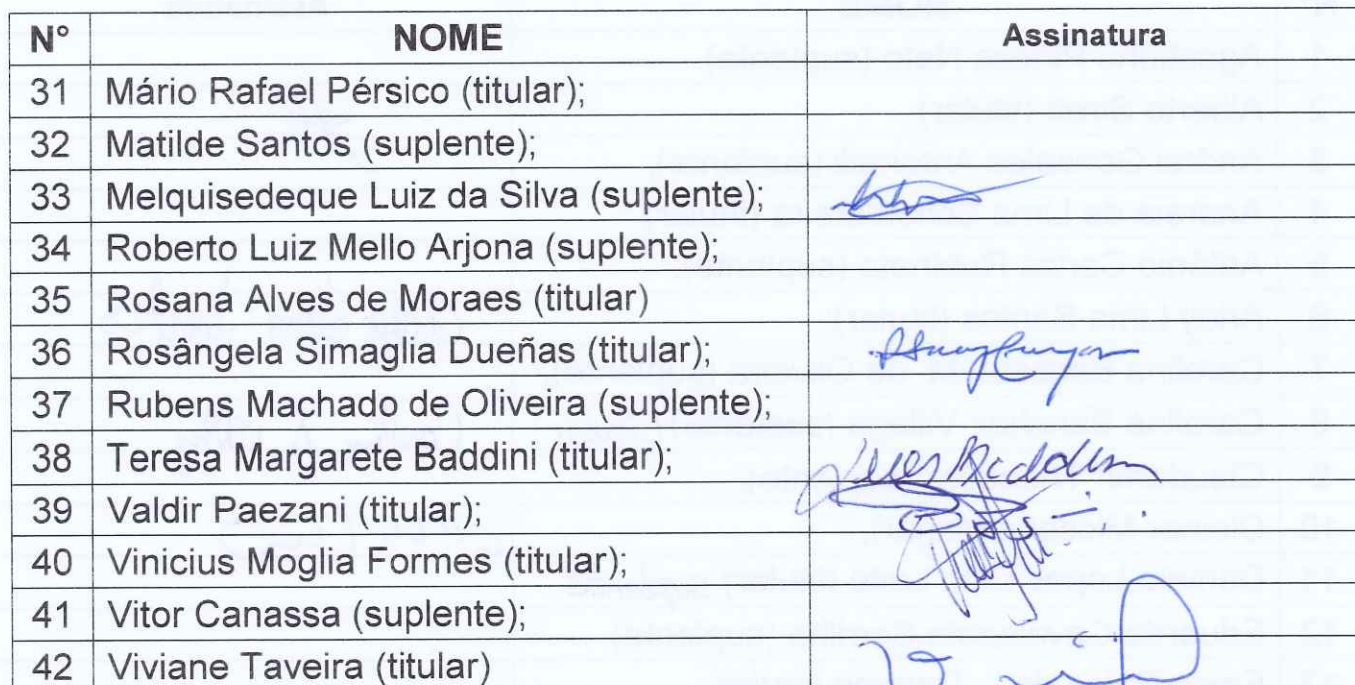 N° NOME Assinatura
31 Mário Rafael Pérsico (titular);
32 Matilde Santos (suplente);
33 Melquisedeque Luiz da Silva (suplente);
34 Roberto Luiz Mello Arjona (suplente);
35 Rosana Alves de Moraes (titular)
36 Rosângela Simaglia Dueñas (titular);
37 Rubens Machado de Oliveira (suplente);
38 Teresa Margarete Baddini (titular);
39 Valdir Paezani (titular);
40 Vinicius Moglia Formes (titular);
41 Vitor Canassa (suplente);
42 Viviane Taveira (titular)